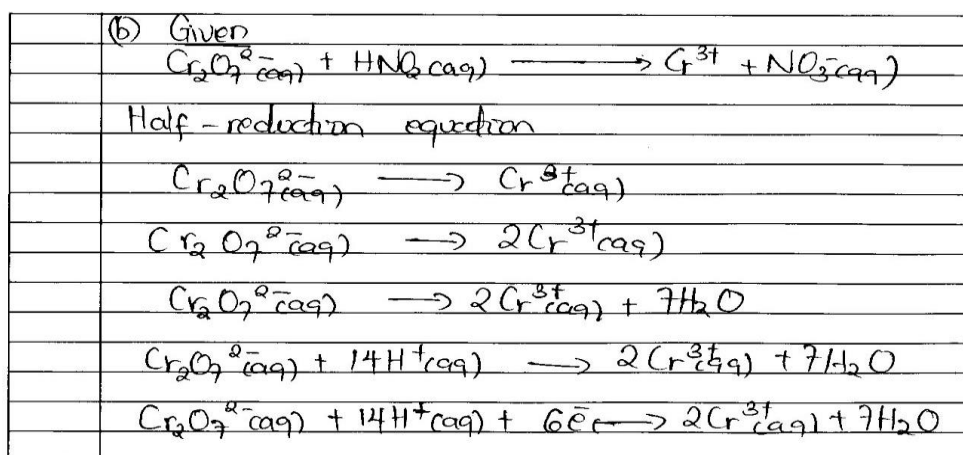 (b) Given
Cr₂O₇²⁻(aq) + HNO₂(aq) ⟶ Cr³⁺ + NO₃⁻(aq)
Half-reduction equation
Cr₂O₇²⁻(aq) ⟶ Cr³⁺(aq)
Cr₂O₇²⁻(aq) ⟶ 2Cr³⁺(aq)
Cr₂O₇²⁻(aq) ⟶ 2Cr³⁺(aq) + 7H₂O
Cr₂O₇²⁻(aq) + 14H⁺(aq) ⟶ 2Cr³⁺(aq) + 7H₂O
Cr₂O₇²⁻(aq) + 14H⁺(aq) + 6ē ⟶ 2Cr³⁺(aq) + 7H₂O